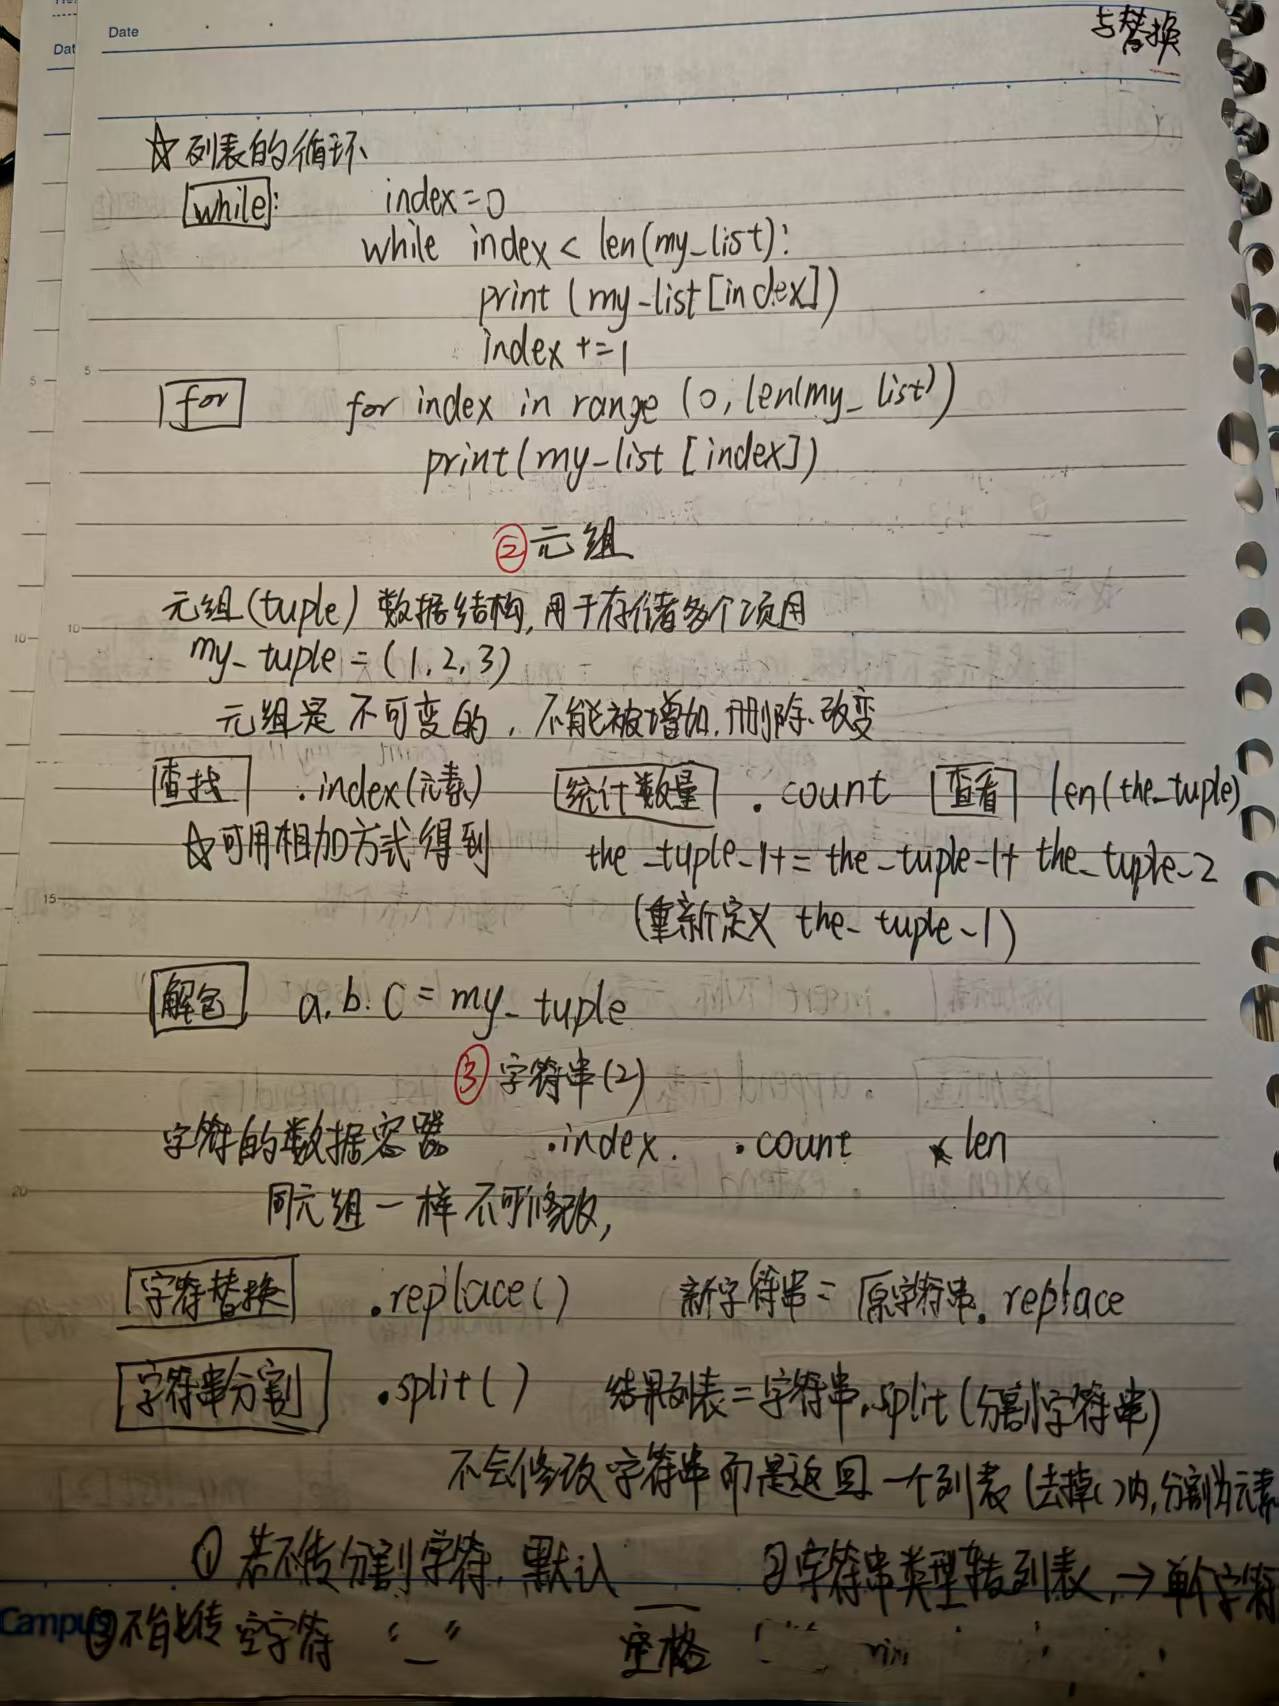 Date
与替换
☆列表的循环
while: index=0
while index < len(my_list):
print (my_list[index])
index +=1
5
for for index in range (0, len(my_list))
print(my_list [index])
②元组
元组(tuple) 数据结构,用于存储多个项用
10
my_tuple = (1,2,3)
元组是不可变的,不能被增加,删除、改变
查找 .index(元素) 统计数量 .count 查看 len(the_tuple)
☆可用相加方式得到 the_tuple_1+= the_tuple_1+ the_tuple_2
15
(重新定义 the_tuple_1)
解包 a,b,c = my_tuple
③字符串(2)
字符的数据容器 .index. .count len
20
同元组一样不可修改,
字符替换 .replace() 新字符串= 原字符串.replace
字符串分割 .split() 结果列表=字符串.split(分割字符串)
不会修改字符串而是返回一个列表(去掉()内,分割为元素
①若不传分割字符,默认 ②字符串类型转列表,→单个字符
Campus ③不能传空字符 “ ” 空格